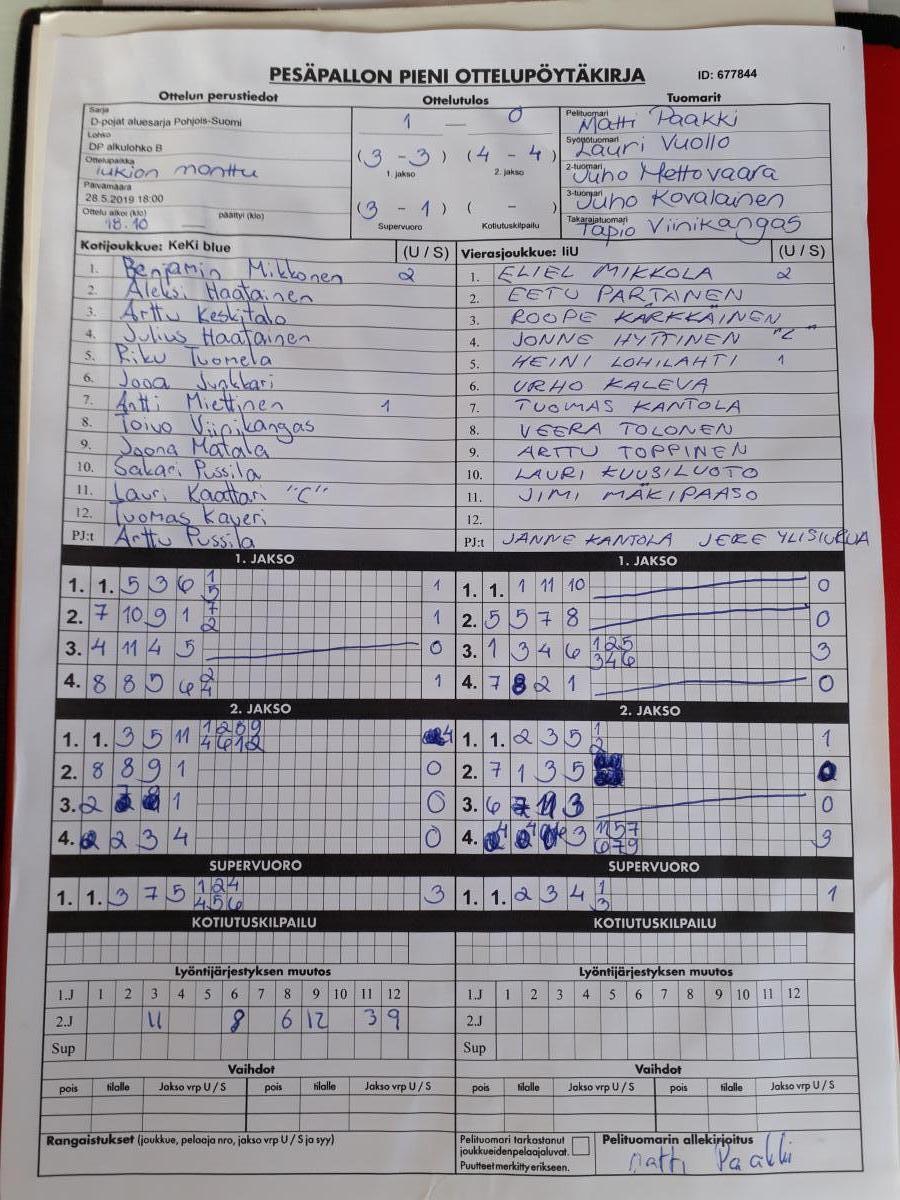 PESÄPALLON PIENI OTTELUPÖYTÄKIRJA ID: 677844
Ottelun perustiedot Ottelutulos Tuomarit
Sarja
D-pojat aluesarja Pohjois-Suomi
Lohko
DP alkulohko B
Ottelupaikka
Iukion monttu
Päivämäärä
28.5.2019 18:00
Ottelu alkoi (klo) päättyi (klo)
18.10
1 — 0
(3 - 3) (4 - 4)
1. jakso 2. jakso
(3 - 1) ( - )
Supervuoro Kotiutuskilpailu
Pelituomari
Matti Paakki
Syöttötuomari
Lauri Vuollo
2-tuomari
Juho Mettovaara
3-tuomari
Juho Kovalainen
Takarajatuomari
Tapio Viinikangas
Kotijoukkue: KeKi blue (U / S)
1. Benjamin Mikkonen 2
2. Aleksi Haatainen
3. Arttu Keskitalo
4. Julius Haatainen
5. Riku Tuomela
6. Jooa Junkkari
7. Antti Miettinen 1
8. Toivo Viinikangas
9. Joona Matala
10. Sakari Pussila
11. Lauri Kaattari "C"
12. Tuomas Kaveri
PJ:t Arttu Pussila
Vierasjoukkue: IiU (U / S)
1. ELIEL MIKKOLA 2
2. EETU PARTANEN
3. ROOPE KÄRKKÄINEN
4. JONNE HYTTINEN "C"
5. HEINI LOHILAHTI 1
6. URHO KALEVA
7. TUOMAS KANTOLA
8. VEERA TOLONEN
9. ARTTU TOPPINEN
10. LAURI KUUSILUOTO
11. JIMI MÄKIPAASO
12.
PJ:t JANNE KANTOLA JERE YLISIURUA
1. JAKSO
1. 1. 5 3 6 1 1
5
2. 7 10 9 1 7 1
2
3. 4 11 4 5 0
4. 8 8 5 6 2 1
4
1. JAKSO
1. 1. 1 11 10 0
2. 5 5 7 8 0
3. 1 3 4 6 1 2 5 3
3 4 6
4. 7 8 2 1 0
2. JAKSO
1. 1. 3 5 11 1 2 8 9 4
4 6 1 2
2. 8 8 9 1 0
3. 2 1 0
4. 2 3 4 0
2. JAKSO
1. 1. 2 3 5 1 1
2
2. 7 1 3 5 0
3. 6 7 11 3 0
4. 3 11 5 7 3
6 7 9
SUPERVUORO
1. 1. 3 7 5 1 2 4 3
4 5 6
SUPERVUORO
1. 1. 2 3 4 1 1
3
KOTIUTUSKILPAILU KOTIUTUSKILPAILU
Lyöntijärjestyksen muutos
1.J 1 2 3 4 5 6 7 8 9 10 11 12
2.J 11 8 6 12 3 9
Sup
Lyöntijärjestyksen muutos
1.J 1 2 3 4 5 6 7 8 9 10 11 12
2.J
Sup
Vaihdot Vaihdot
pois tilalle Jakso vrp U / S pois tilalle Jakso vrp U / S
pois tilalle Jakso vrp U / S pois tilalle Jakso vrp U / S
Rangaistukset (joukkue, pelaaja nro, jakso vrp U / S ja syy)
Pelituomari tarkastanut
joukkueidenpelaajaluvat.
Puutteet merkitty erikseen.
Pelituomarin allekirjoitus
Matti Paakki